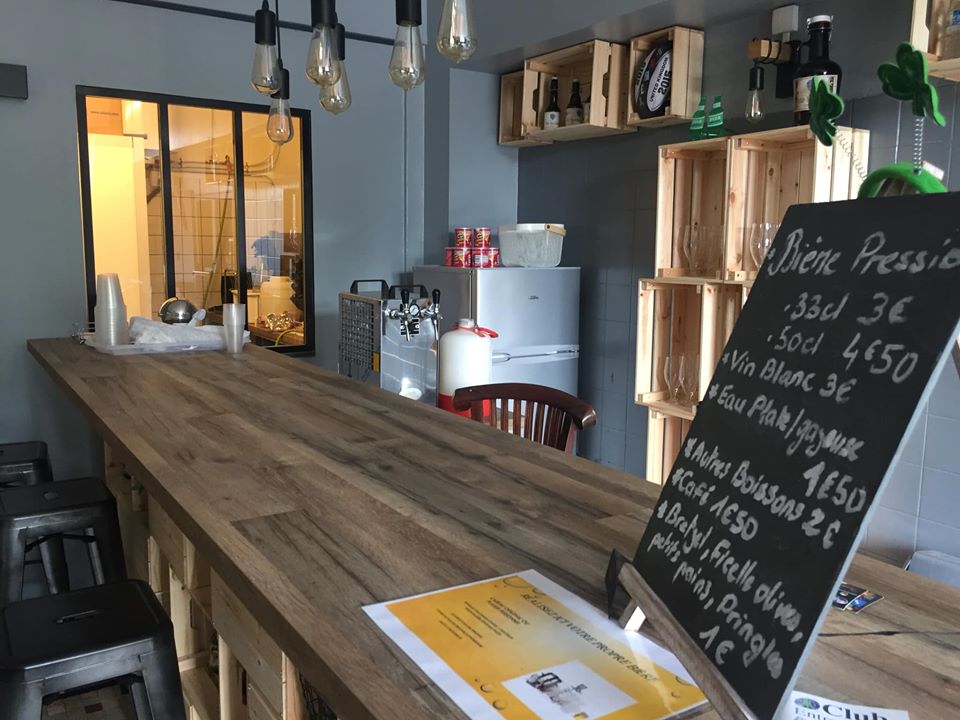 Bière Pressio
.33cl 3€
.50cl 4€50
*Vin Blanc 3€
*Eau Plate/gazeuse
1€50
*Autres Boissons 2€
*Café 1€50
*Bretzel, Ficelle olives,
petits pains, Pringles
1€
RÉALISEZ ICI VOTRE PROPRE BIÈRE
Club